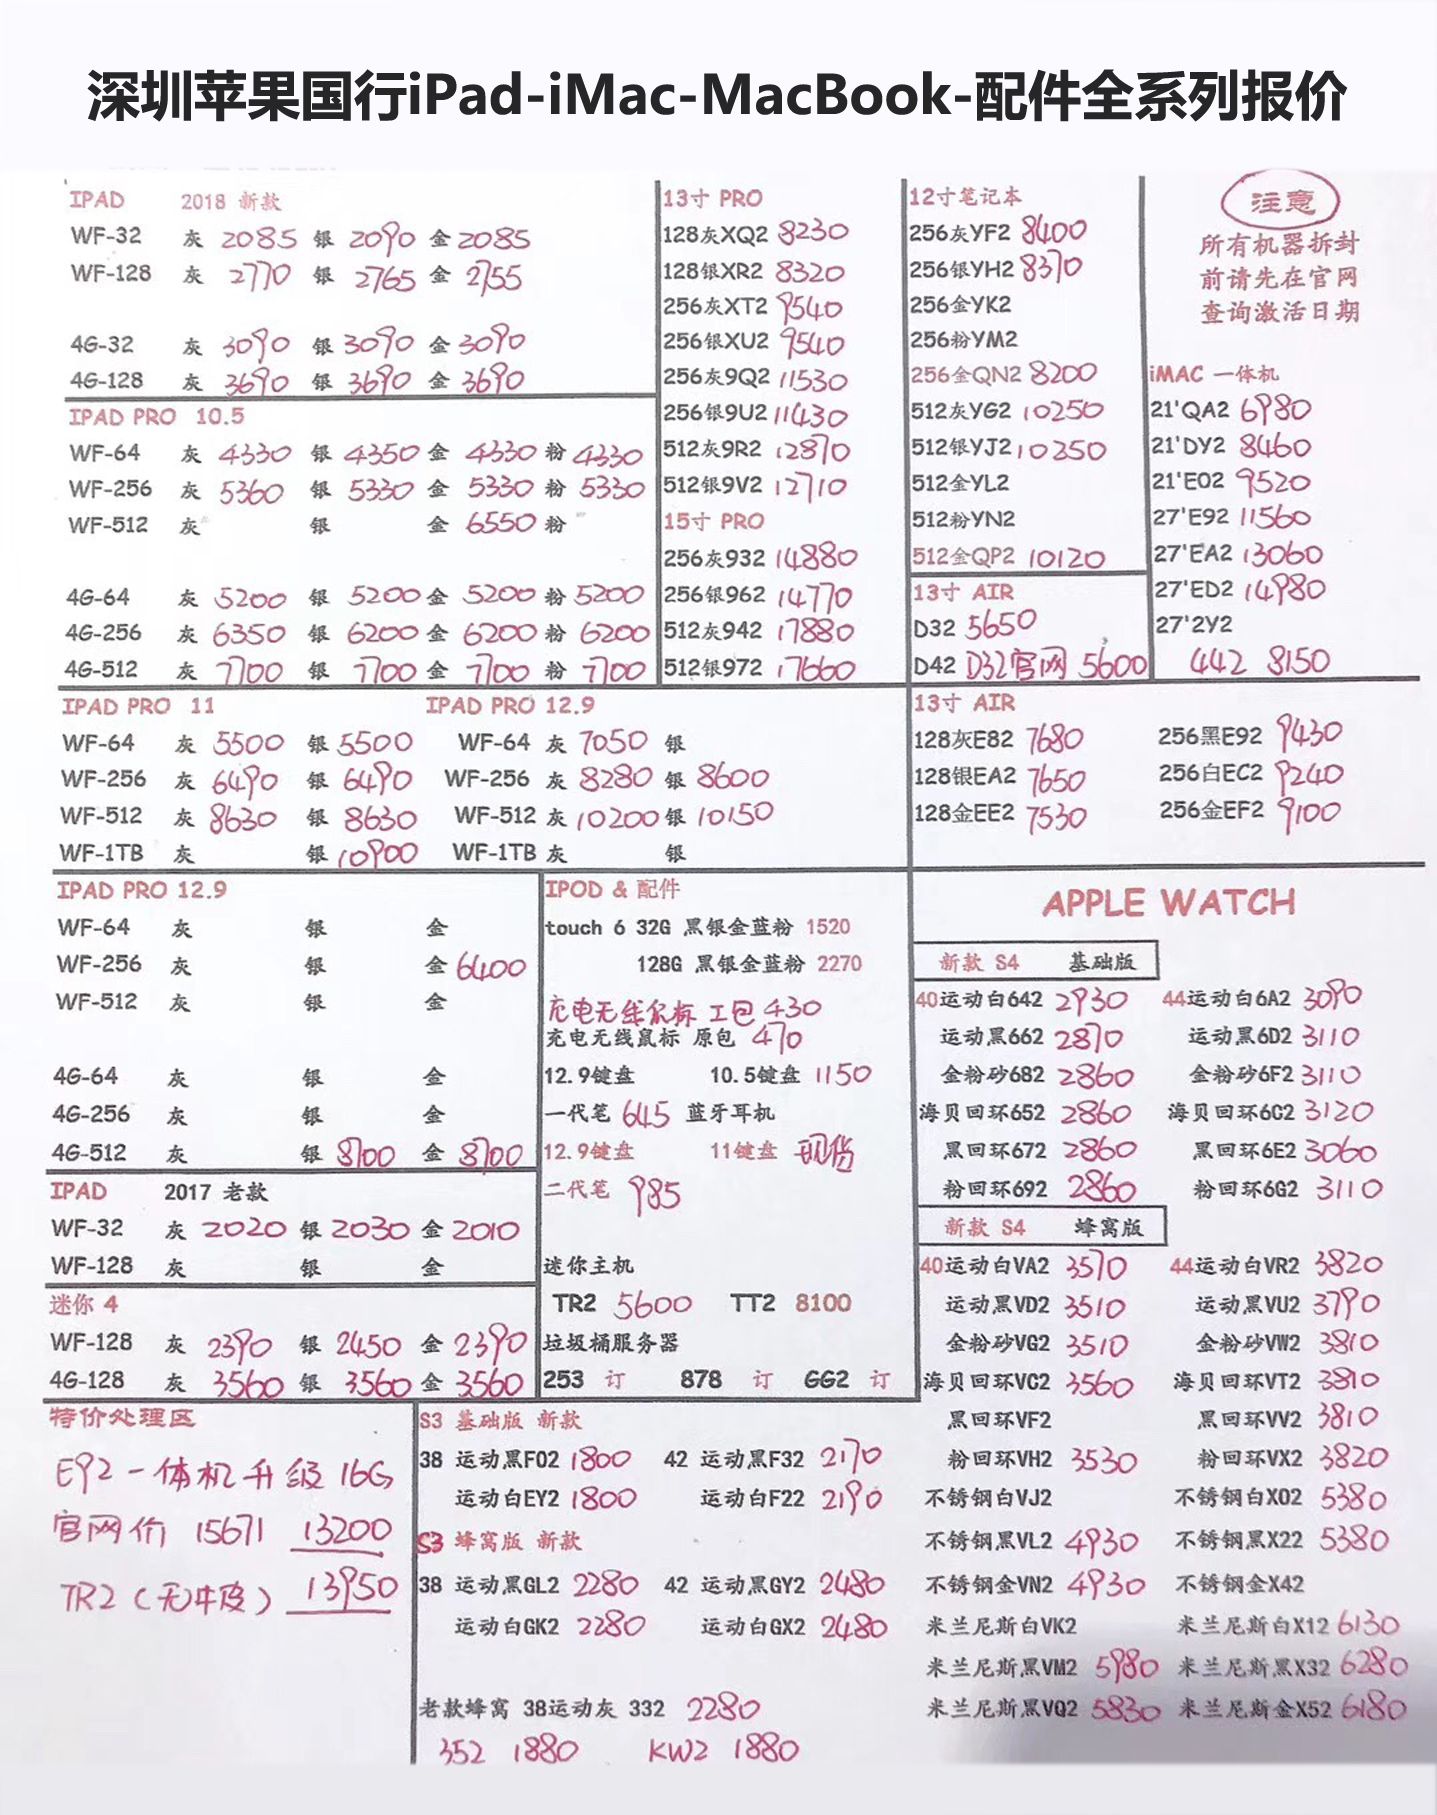 深圳苹果国行iPad-iMac-MacBook-配件全系列报价
IPAD 2018 新款
WF-32 灰 2085 银 2090 金 2085
WF-128 灰 2770 银 2765 金 2755
4G-32 灰 3090 银 3090 金 3090
4G-128 灰 3690 银 3690 金 3690
IPAD PRO 10.5
WF-64 灰 4330 银 4350 金 4330 粉 4330
WF-256 灰 5360 银 5330 金 5330 粉 5330
WF-512 灰 银 金 6550 粉
4G-64 灰 5200 银 5200 金 5200 粉 5200
4G-256 灰 6350 银 6200 金 6200 粉 6200
4G-512 灰 7700 银 7700 金 7700 粉 7700
13寸 PRO
128灰XQ2 8230
128银XR2 8320
256灰XT2 9540
256银XU2 9540
256灰9Q2 11530
256银9U2 11430
512灰9R2 12870
512银9V2 12710
15寸 PRO
256灰932 14880
256银962 14770
512灰942 17880
512银972 17660
12寸笔记本
256灰YF2 8400
256银YH2 8370
256金YK2
256粉YM2
256金QN2 8200
512灰YG2 10250
512银YJ2 10250
512金YL2
512粉YN2
512金QP2 10120
13寸 AIR
D32 5650
D42 D32官网 5600
注意
所有机器拆封
前请先在官网
查询激活日期
iMAC 一体机
21'QA2 6980
21'DY2 8460
21'E02 9520
27'E92 11560
27'EA2 13060
27'ED2 14980
27'2Y2
442 8150
IPAD PRO 11
WF-64 灰 5500 银 5500
WF-256 灰 6490 银 6490
WF-512 灰 8630 银 8630
WF-1TB 灰 银 10900
IPAD PRO 12.9
WF-64 灰 7050 银
WF-256 灰 8280 银 8600
WF-512 灰 10200 银 10150
WF-1TB 灰 银
13寸 AIR
128灰E82 7680 256黑E92 9430
128银EA2 7650 256白EC2 9240
128金EE2 7530 256金EF2 9100
IPAD PRO 12.9
WF-64 灰 银 金
WF-256 灰 银 金 6400
WF-512 灰 银 金
4G-64 灰 银 金
4G-256 灰 银 金
4G-512 灰 银 8700 金 8700
IPAD 2017 老款
WF-32 灰 2020 银 2030 金 2010
WF-128 灰 银 金
迷你 4
WF-128 灰 2390 银 2450 金 2390
4G-128 灰 3560 银 3560 金 3560
IPOD & 配件
touch 6 32G 黑银金蓝粉 1520
128G 黑银金蓝粉 2270
充电无线鼠标 工包 430
充电无线鼠标 原包 470
12.9键盘 10.5键盘 1150
一代笔 645 蓝牙耳机
12.9键盘 11键盘 现货
二代笔 985
迷你主机
TR2 5600 TT2 8100
垃圾桶服务器
253 订 878 订 GG2 订
APPLE WATCH
新款 S4 基础版
40运动白642 2930 44运动白6A2 3090
运动黑662 2870 运动黑6D2 3110
金粉砂682 2860 金粉砂6F2 3110
海贝回环652 2860 海贝回环6C2 3120
黑回环672 2860 黑回环6E2 3060
粉回环692 2860 粉回环6G2 3110
新款 S4 蜂窝版
40运动白VA2 3570 44运动白VR2 3820
运动黑VD2 3510 运动黑VU2 3790
金粉砂VG2 3510 金粉砂VW2 3810
海贝回环VC2 3560 海贝回环VT2 3810
黑回环VF2 黑回环VV2 3810
粉回环VH2 3530 粉回环VX2 3820
不锈钢白VJ2 不锈钢白X02 5380
不锈钢黑VL2 4930 不锈钢黑X22 5380
不锈钢金VN2 4930 不锈钢金X42
米兰尼斯白VK2 米兰尼斯白X12 6130
米兰尼斯黑VM2 5980 米兰尼斯黑X32 6280
米兰尼斯黑VQ2 5830 米兰尼斯金X52 6180
特价处理区
E92一体机升级16G
官网价 15671 13200
TR2(无牛皮) 13950
S3 基础版 新款
38 运动黑F02 1800 42 运动黑F32 2170
运动白EY2 1800 运动白F22 2190
S3 蜂窝版 新款
38 运动黑GL2 2280 42 运动黑GY2 2480
运动白GK2 2280 运动白GX2 2480
老款蜂窝 38运动灰 332 2280
352 1880 KW2 1880